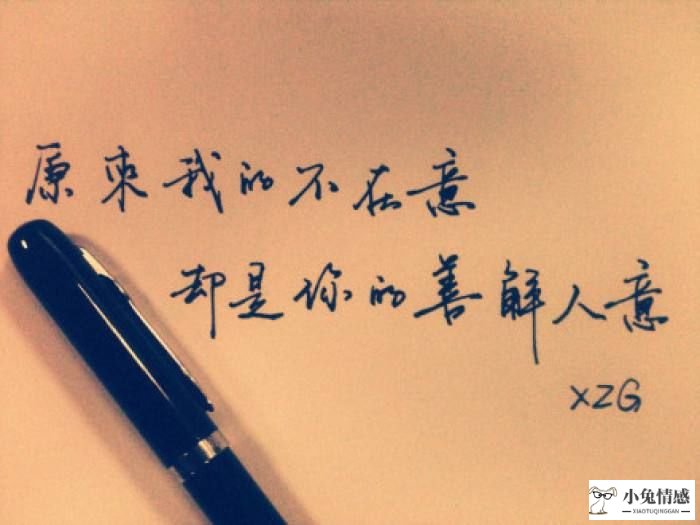 原来我的不在意
却是你的善解人意
XZG
小兔情感
XIAOTUQINGGAN